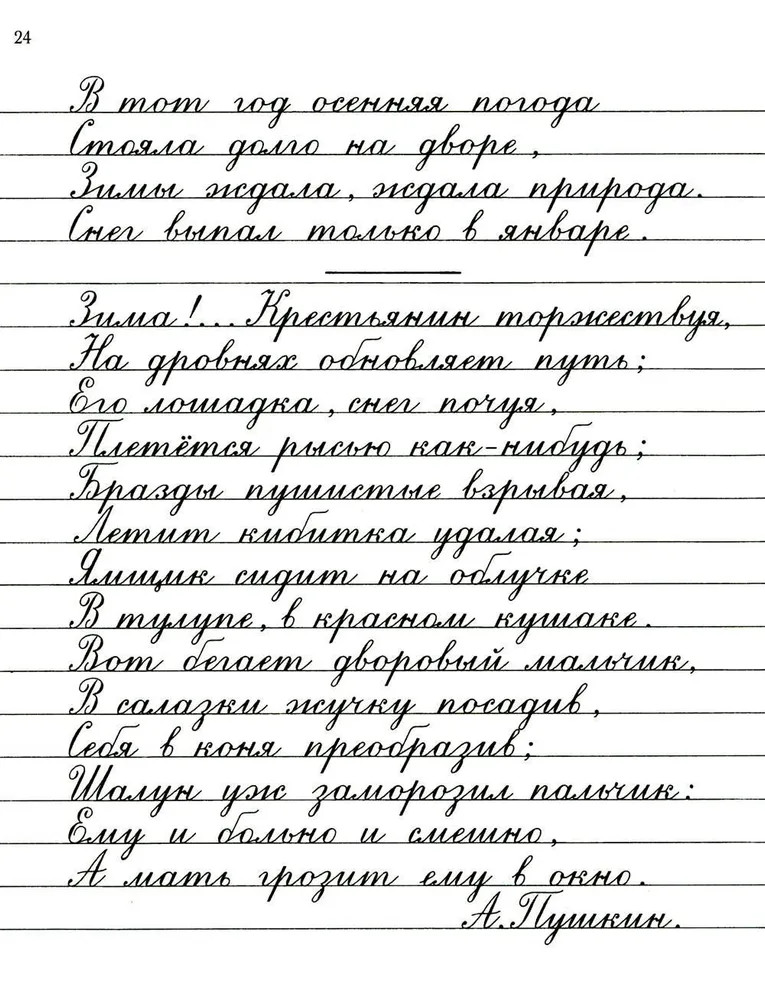 24
В тот год осенняя погода
Стояла долго на дворе,
Зимы ждала, ждала природа.
Снег выпал только в январе.
Зима!... Крестьянин торжествуя,
На дровнях обновляет путь;
Его лошадка, снег почуя,
Плетётся рысью как-нибудь;
Бразды пушистые взрывая,
Летит кибитка удалая;
Ямщик сидит на облучке
В тулупе, в красном кушаке.
Вот бегает дворовый мальчик,
В салазки жучку посадив,
Себя в коня преобразив;
Шалун уж заморозил пальчик:
Ему и больно и смешно,
А мать грозит ему в окно.
А. Пушкин.